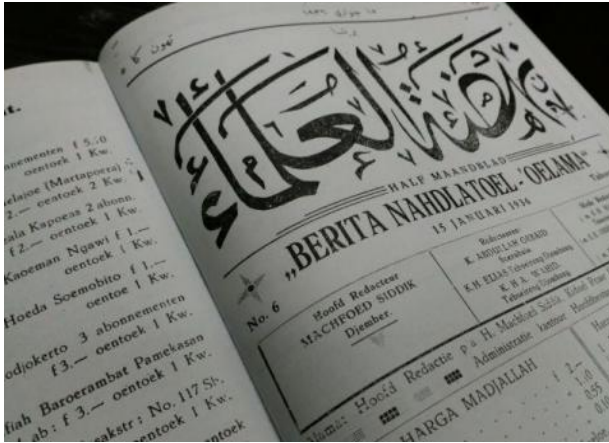 t.
nnementen f 5.-0
oentoek 1 Kw.
elajoe (Martapoera)
2.— oentoek 2 Kw.
ala Kapoeas 2 abonn.
f 2.— oentoek 1 Kw.
Kaoeman Ngawi f 1.—
oentoek 1 Kw.
Hoeda Soemobito f 1.—
oentoe 1 Kw.
odjokerto 3 abonnementen
f 3.— oentoek 1 Kw.
fiah Baroerambat Pamekasan
ab : f 3.— oentoek 1 Kw.
sakstr : No. 117 Sb.
oentoek 1 Kw.
نهضة العلماء
HALF MAANDBLAD
„BERITA NAHDLATOEL-'OELAMA"
15 JANUARI 1936
No. 6
Hoofd Redacteur
MACHFOED SIDDIK
Djember.
Redacteuren
K. ABDULLAH OEBAID
Soerabaia
K.H. ELIAS Teboeireng Djombang
K. H. A. WAHID.
Teboeireng Djombang
Alamat: Hoofd Redactie p/a H. Machfoed Siddik
Administratie kantoor
HARGA MADJALLAH
f 2.—